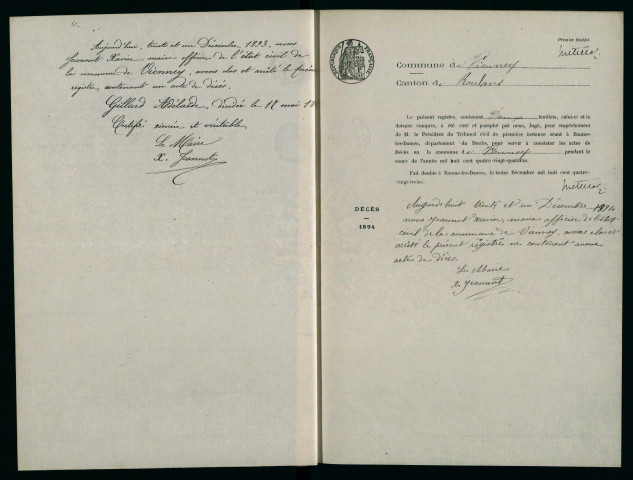 Aujourd'hui, trente et un Décembre 1893, nous
Jeannot Xavier maire officier de l'état civil de
la commune de Vienney, avons clos et arrêté le présent
registre, contenant un acte de décès.
Gillard Adélaïde, décédée le 17 mai 18
Certifié sincère et véritable.
Le Maire
X. Jeannot
Premier feuillet
Commune de Vienney
Canton de Roulans
Le présent registre, contenant feuillets, celui-ci et le
dernier compris, a été coté et paraphé par nous, Juge, pour empêchement
de M. le Président du Tribunal civil de première instance séant à Baume-
les-Dames, département du Doubs, pour servir à constater les actes de
Décès en la commune de Vienney pendant le
cours de l'année mil huit cent quatre-vingt-quatorze.
Fait double à Baume-les-Dames, le treize Décembre mil huit cent quatre-
vingt-treize.
DÉCÈS
1894
Aujourd'huit trente et un Décembre 1894
nous Jeannot Xavier, maire officier de l'état
civil de la commune de Vienney, avons clos et
arrêté le présent registre ne contenant aucun
acte de décès.
Le Maire
X. Jeannot